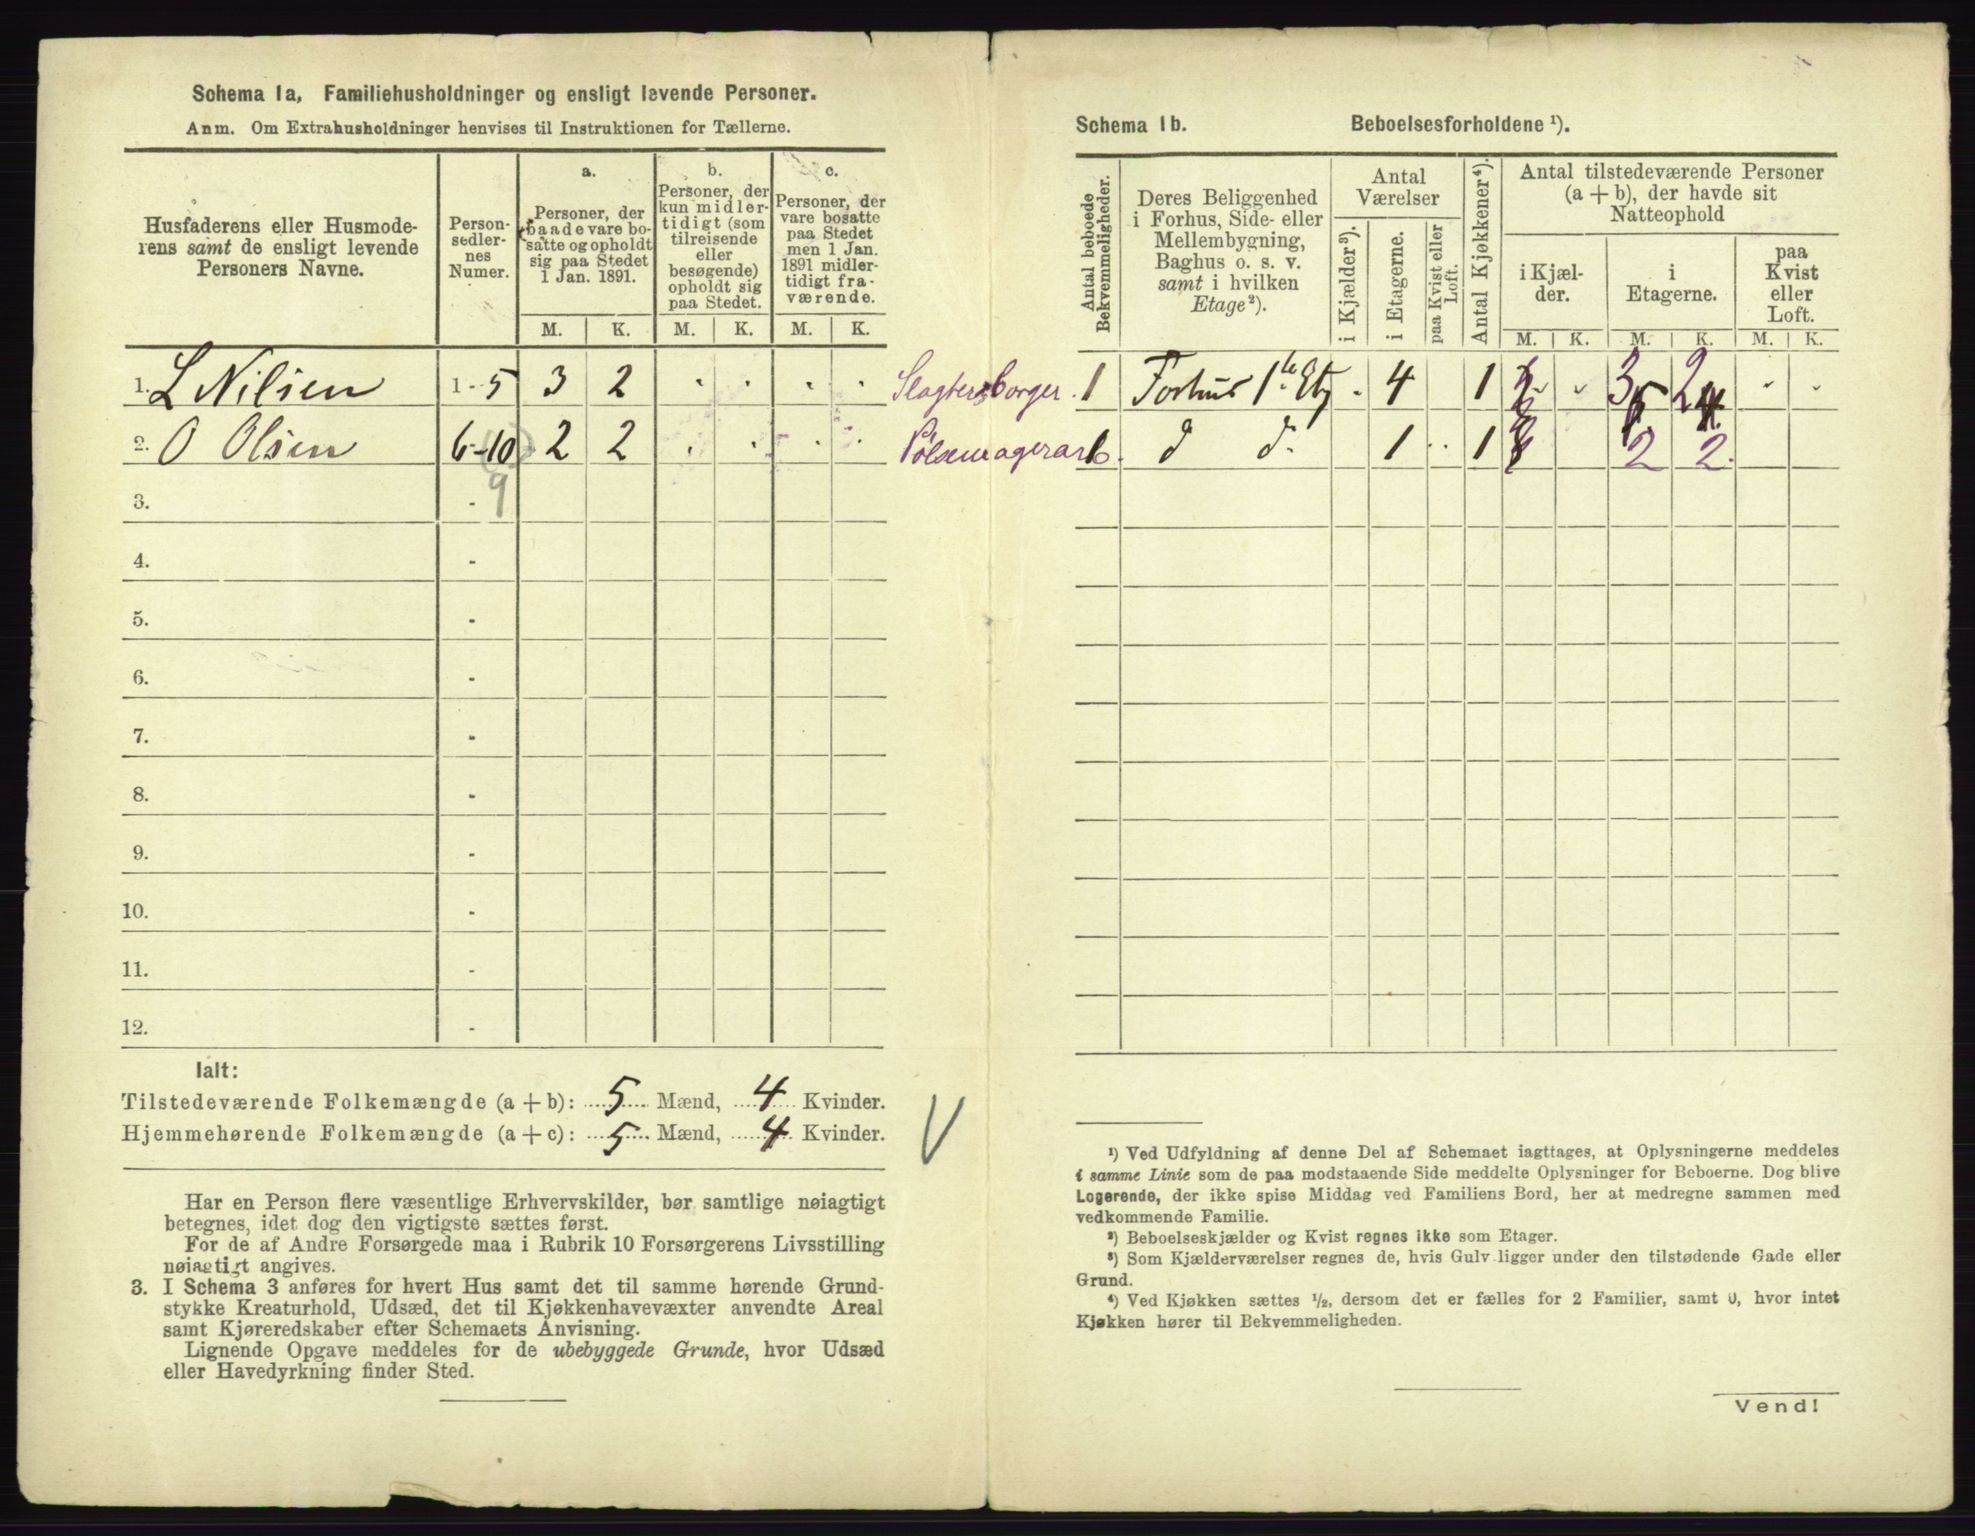 Schema 1a, Familiehusholdninger og ensligt levende Personer.
Anm. Om Extrahusholdninger henvises til Instruktionen for Tællerne.
Husfaderens eller Husmode-
rens samt de ensligt levende
Personers Navne.
Person-
sedler-
nes
Numer.
a.
Personer, der
baade vare bo-
satte og opholdt
sig paa Stedet
1 Jan. 1891.
b.
Personer, der
kun midler-
tidigt (som
tilreisende
eller
besøgende)
opholdt sig
paa Stedet.
c.
Personer, der
vare bosatte
paa Stedet
men 1 Jan.
1891 midler-
tidigt fra-
værende.
M. K. M. K. M. K.
1. L Nilsen 1 - 5 3 2
2. O Olsen 6 - 10 2 2
3. - 9
4. -
5. -
6. -
7. -
8. -
9. -
10. -
11. -
12. -
Ialt:
Tilstedeværende Folkemængde (a + b): 5 Mænd, 4 Kvinder.
Hjemmehørende Folkemængde (a + c): 5 Mænd, 4 Kvinder.
Har en Person flere væsentlige Erhvervskilder, bør samtlige nøiagtigt
betegnes, idet dog den vigtigste sættes først.
For de af Andre Forsørgede maa i Rubrik 10 Forsørgerens Livsstilling
nøiagtigt angives.
3. I Schema 3 anføres for hvert Hus samt det til samme hørende Grund-
stykke Kreaturhold, Udsæd, det til Kjøkkenhavevæxter anvendte Areal
samt Kjøreredskaber efter Schemaets Anvisning.
Lignende Opgave meddeles for de ubebyggede Grunde, hvor Udsæd
eller Havedyrkning finder Sted.
Schema 1b. Beboelsesforholdene ¹).
Antal beboede
Bekvemmeligheder.
Deres Beliggenhed
i Forhus, Side- eller
Mellembygning,
Baghus o. s. v.
samt i hvilken
Etage²).
Antal
Værelser
i Kjælder³).
i Etagerne.
paa Kvist eller
Loft.
Antal Kjøkkener⁴).
Antal tilstedeværende Personer
(a + b), der havde sit
Natteophold
i Kjæl-
der.
i
Etagerne.
paa
Kvist
eller
Loft.
M. K. M. K. M. K.
Slagter borger. 1 Forhus 1ste Etg 4 1 3 2
Pølsemagerarb. 1 d d. 1 1 2 2
¹) Ved Udfyldning af denne Del af Schemaet iagttages, at Oplysningerne meddeles
i samme Linie som de paa modstaaende Side meddelte Oplysninger for Beboerne. Dog blive
Logerende, der ikke spise Middag ved Familiens Bord, her at medregne sammen med
vedkommende Familie.
²) Beboelseskjælder og Kvist regnes ikke som Etager.
³) Som Kjælderværelser regnes de, hvis Gulv ligger under den tilstødende Gade eller
Grund.
⁴) Ved Kjøkken sættes ½, dersom det er fælles for 2 Familier, samt 0, hvor intet
Kjøkken hører til Bekvemmeligheden.
Vend!